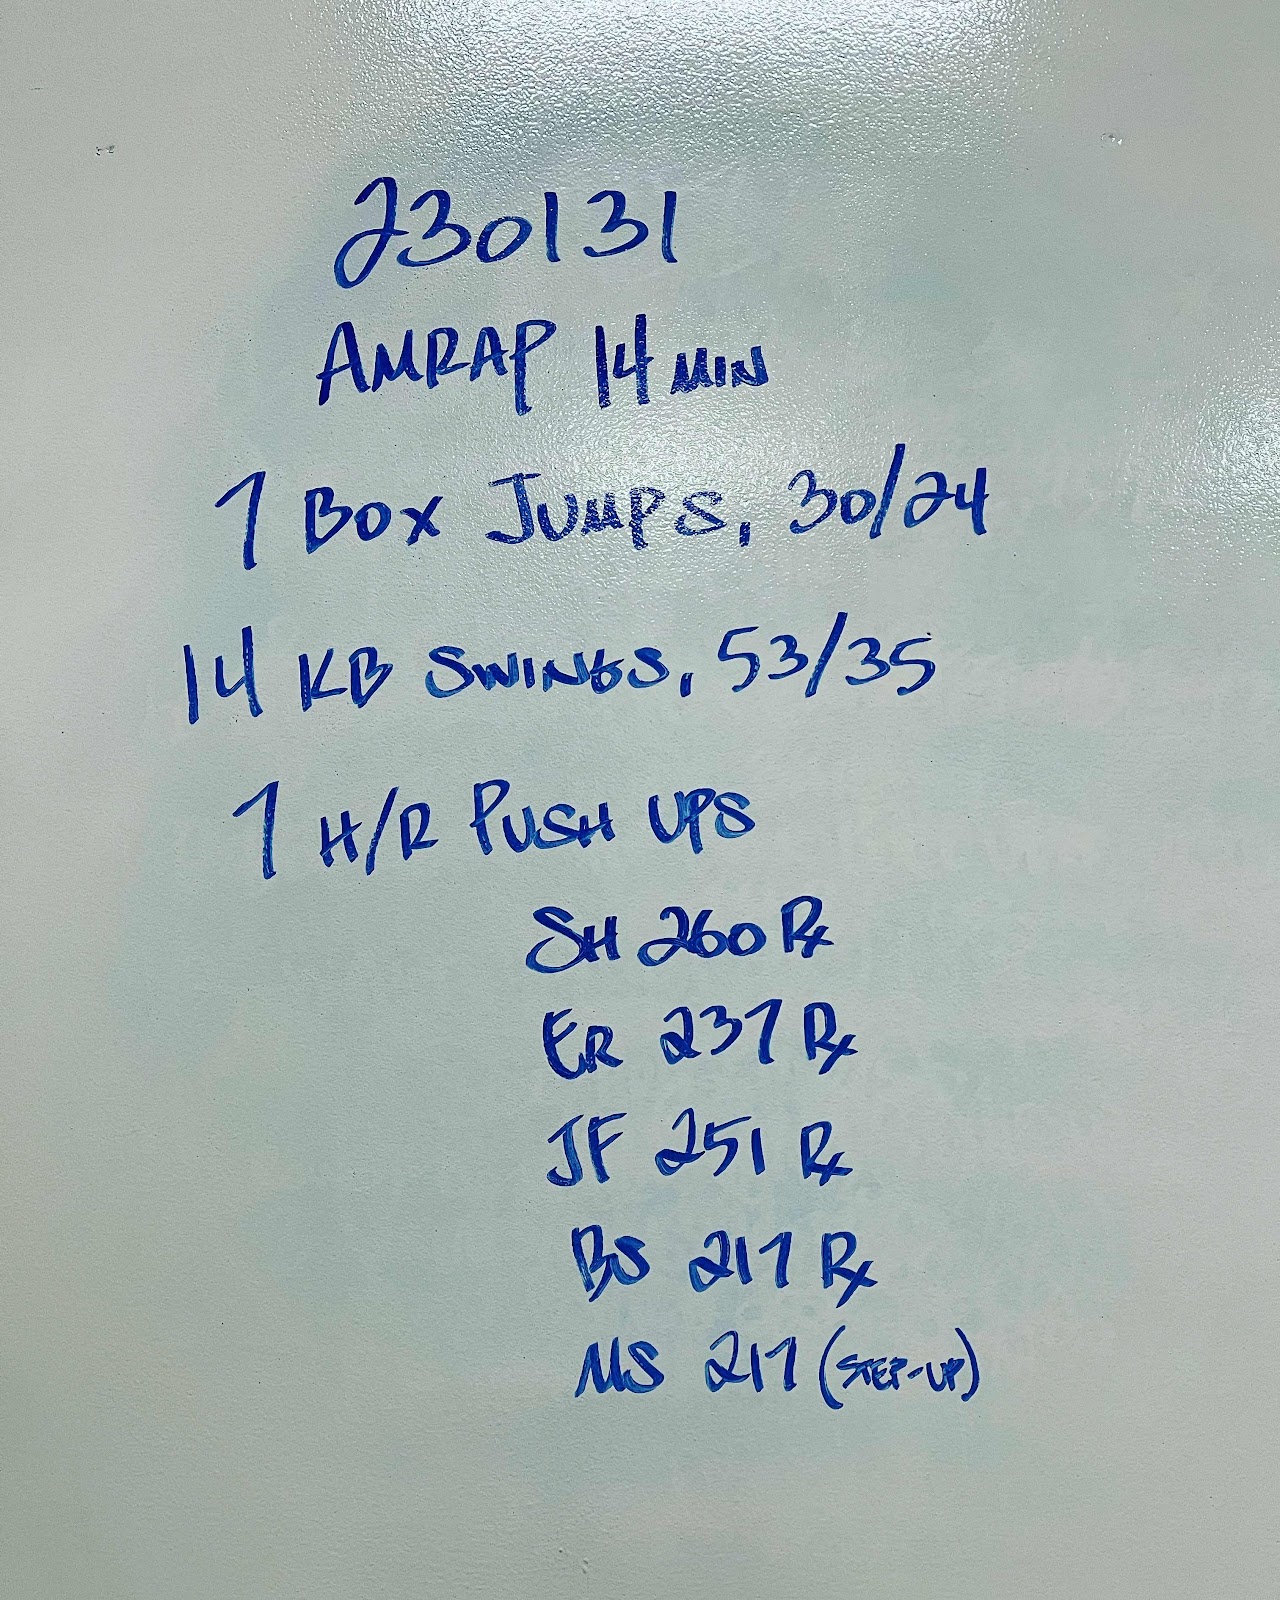 230131
AMRAP 14 MIN
7 BOX JUMPS, 30/24
14 KB SWINGS, 53/35
7 H/R PUSH UPS
SH 260 Rx
ER 237 Rx
JF 251 Rx
BS 217 Rx
MS 217 (STEP-UP)